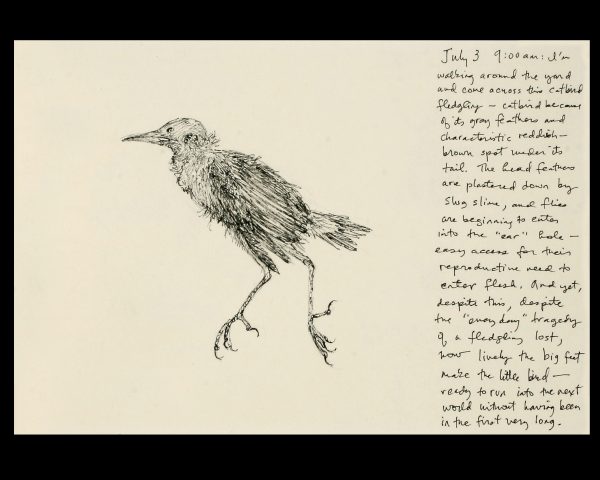 July 3 9:00am: I'm
walking around the yard
and come across this catbird
fledgling — catbird because
of its gray feathers and
characteristic reddish-
brown spot under its
tail. The head feathers
are plastered down by
slug slime, and flies
are beginning to enter
into the "ear" hole —
easy access for their
reproductive need to
enter flesh. And yet,
despite this, despite
the "everyday" tragedy
of a fledgling lost,
how lively the big feet
make the little bird —
ready to run into the next
world without having been
in the first very long.